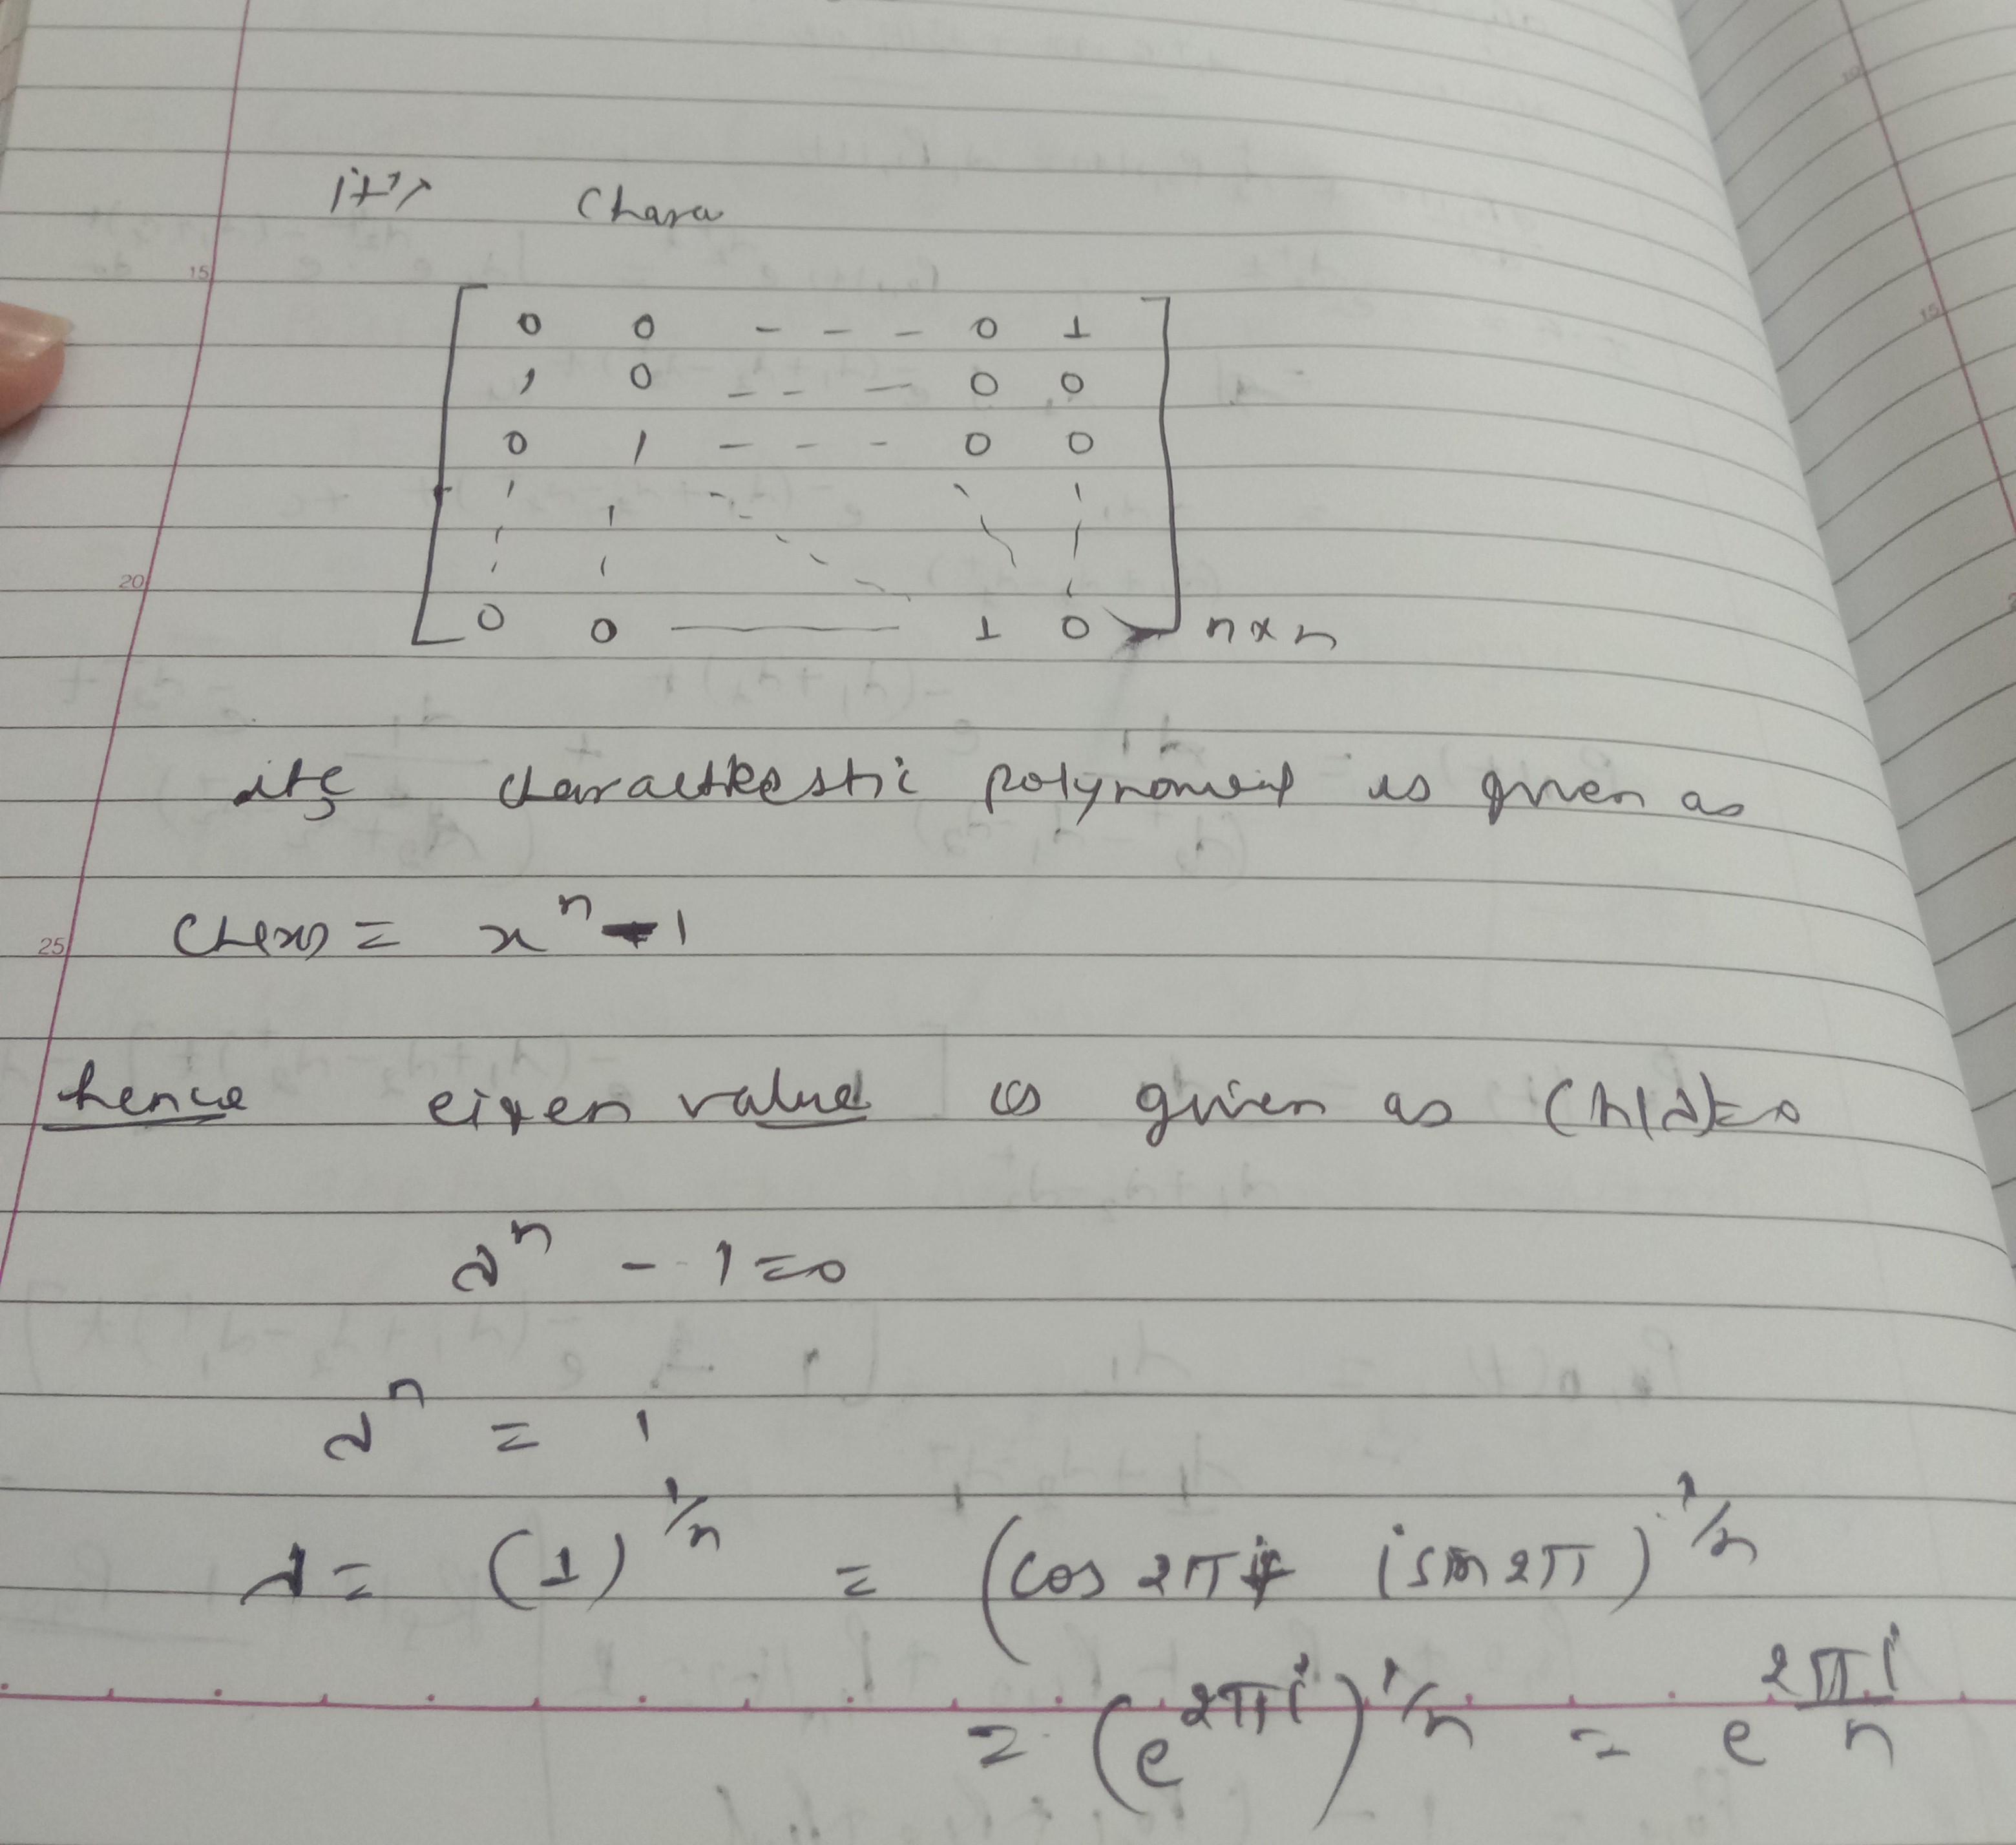 it's Chara
15
0 0 - - - 0 1
1 0 - - - 0 0
0 1 - - - 0 0
20
0 0 ——— 1 0 n×n
its characteristic polynomial is given as
25
Ch(x) = x^n - 1
hence eigen value is given as Ch(λ)=0
λ^n - 1 = 0
λ^n = 1
λ = (1)^1/n = (cos 2π + i sin 2π)^1/n
= (e^2πi)^1/n = e^2πi/n